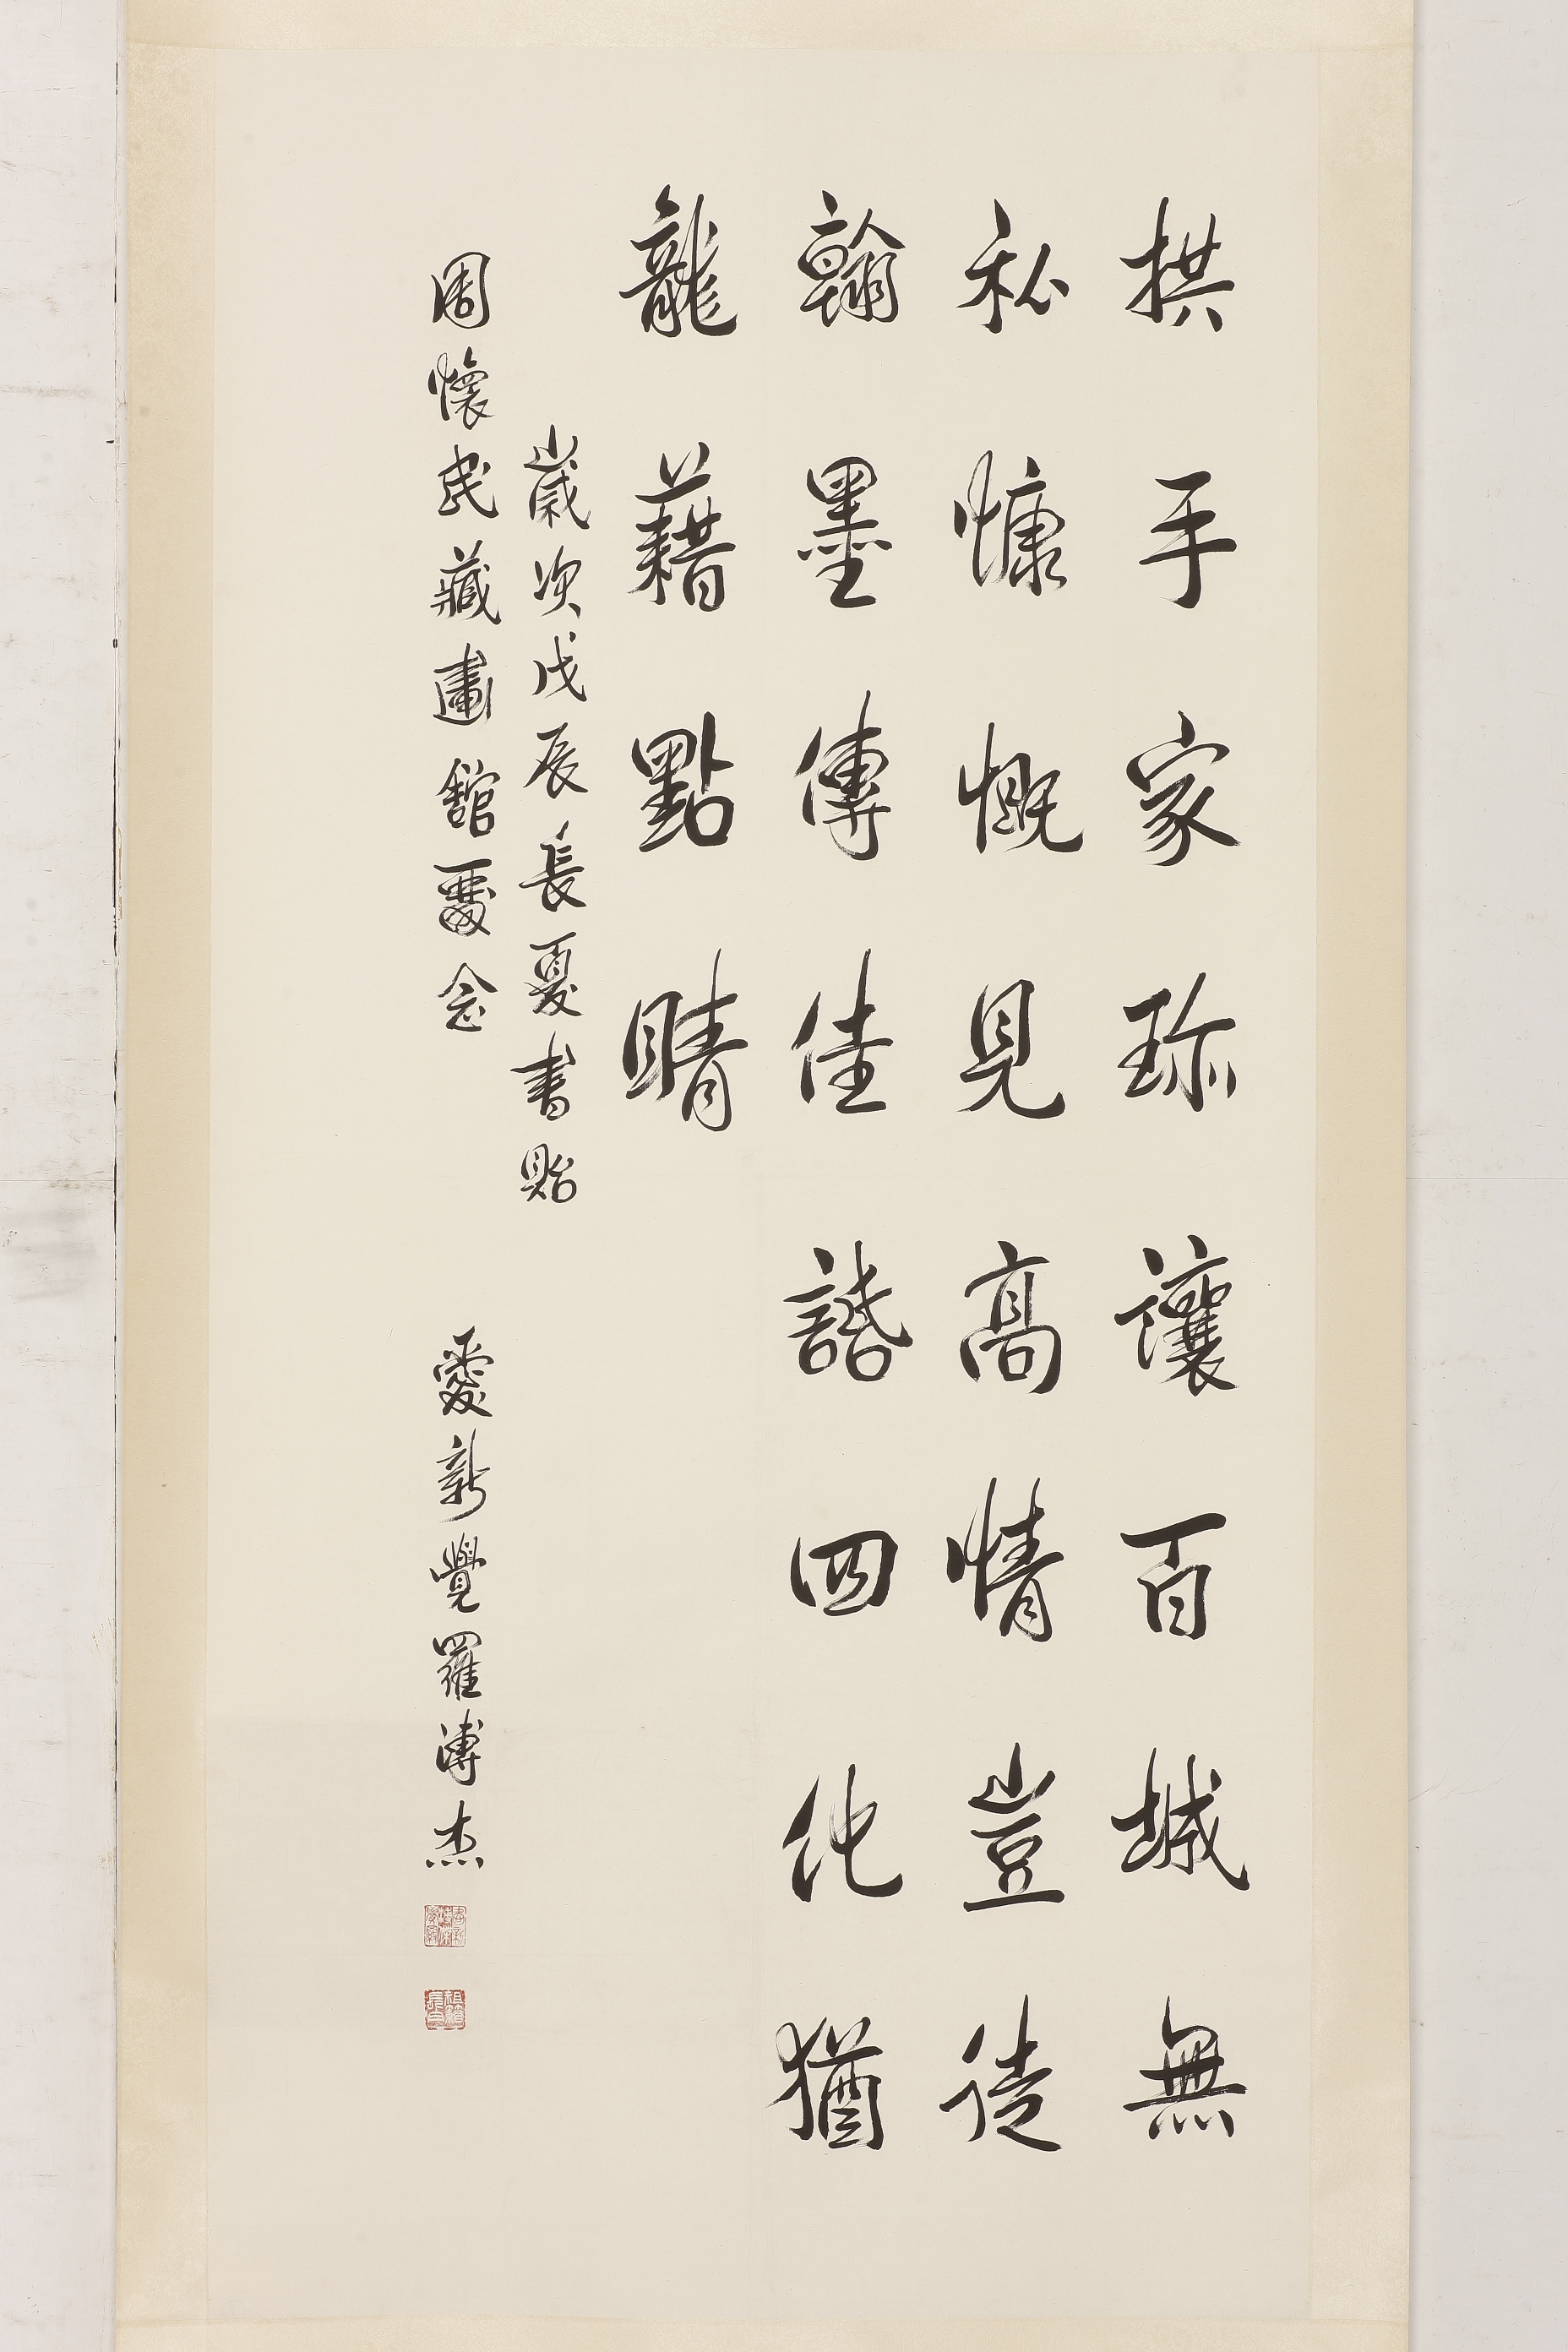 拱手家珍讓百城無
私慷慨見高情豈徒
翰墨傳佳話四化猶
龍藉點睛
歲次戊辰長夏書貽
周懷民藏畫館留念
愛新覺羅溥杰